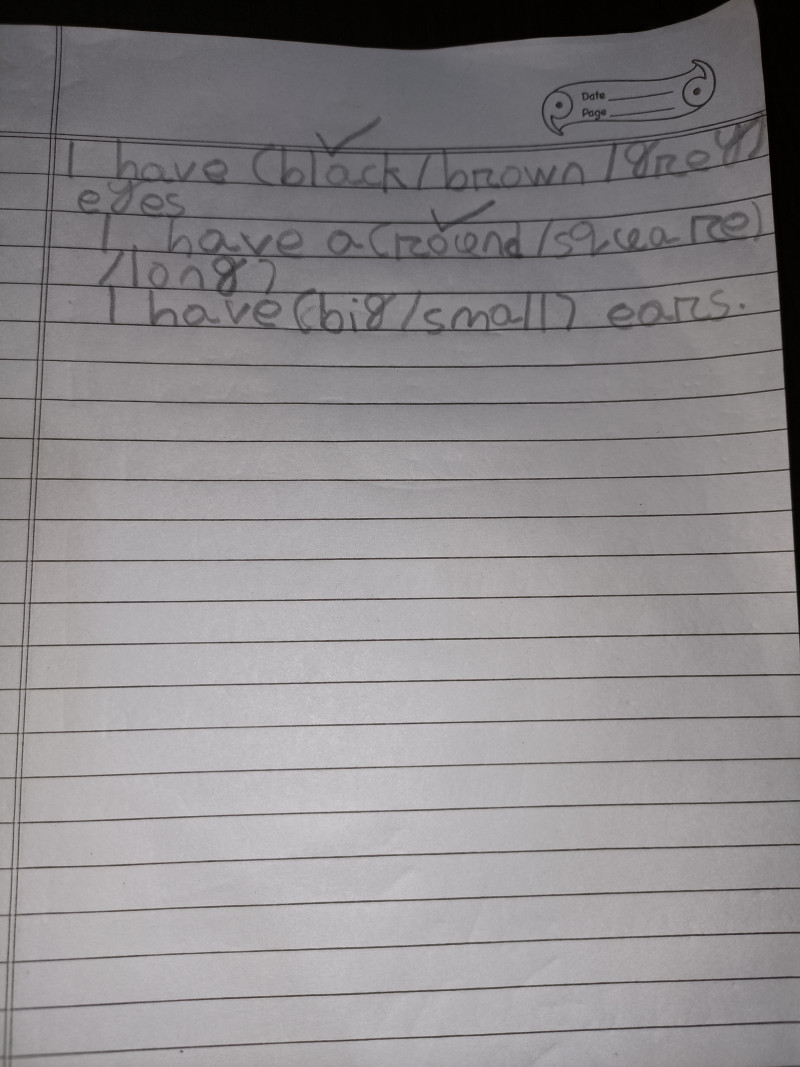 Date
Page
I have (black/brown/grey)
eyes
I have a (round/squeare)
/long)
I have (big/small) ears.